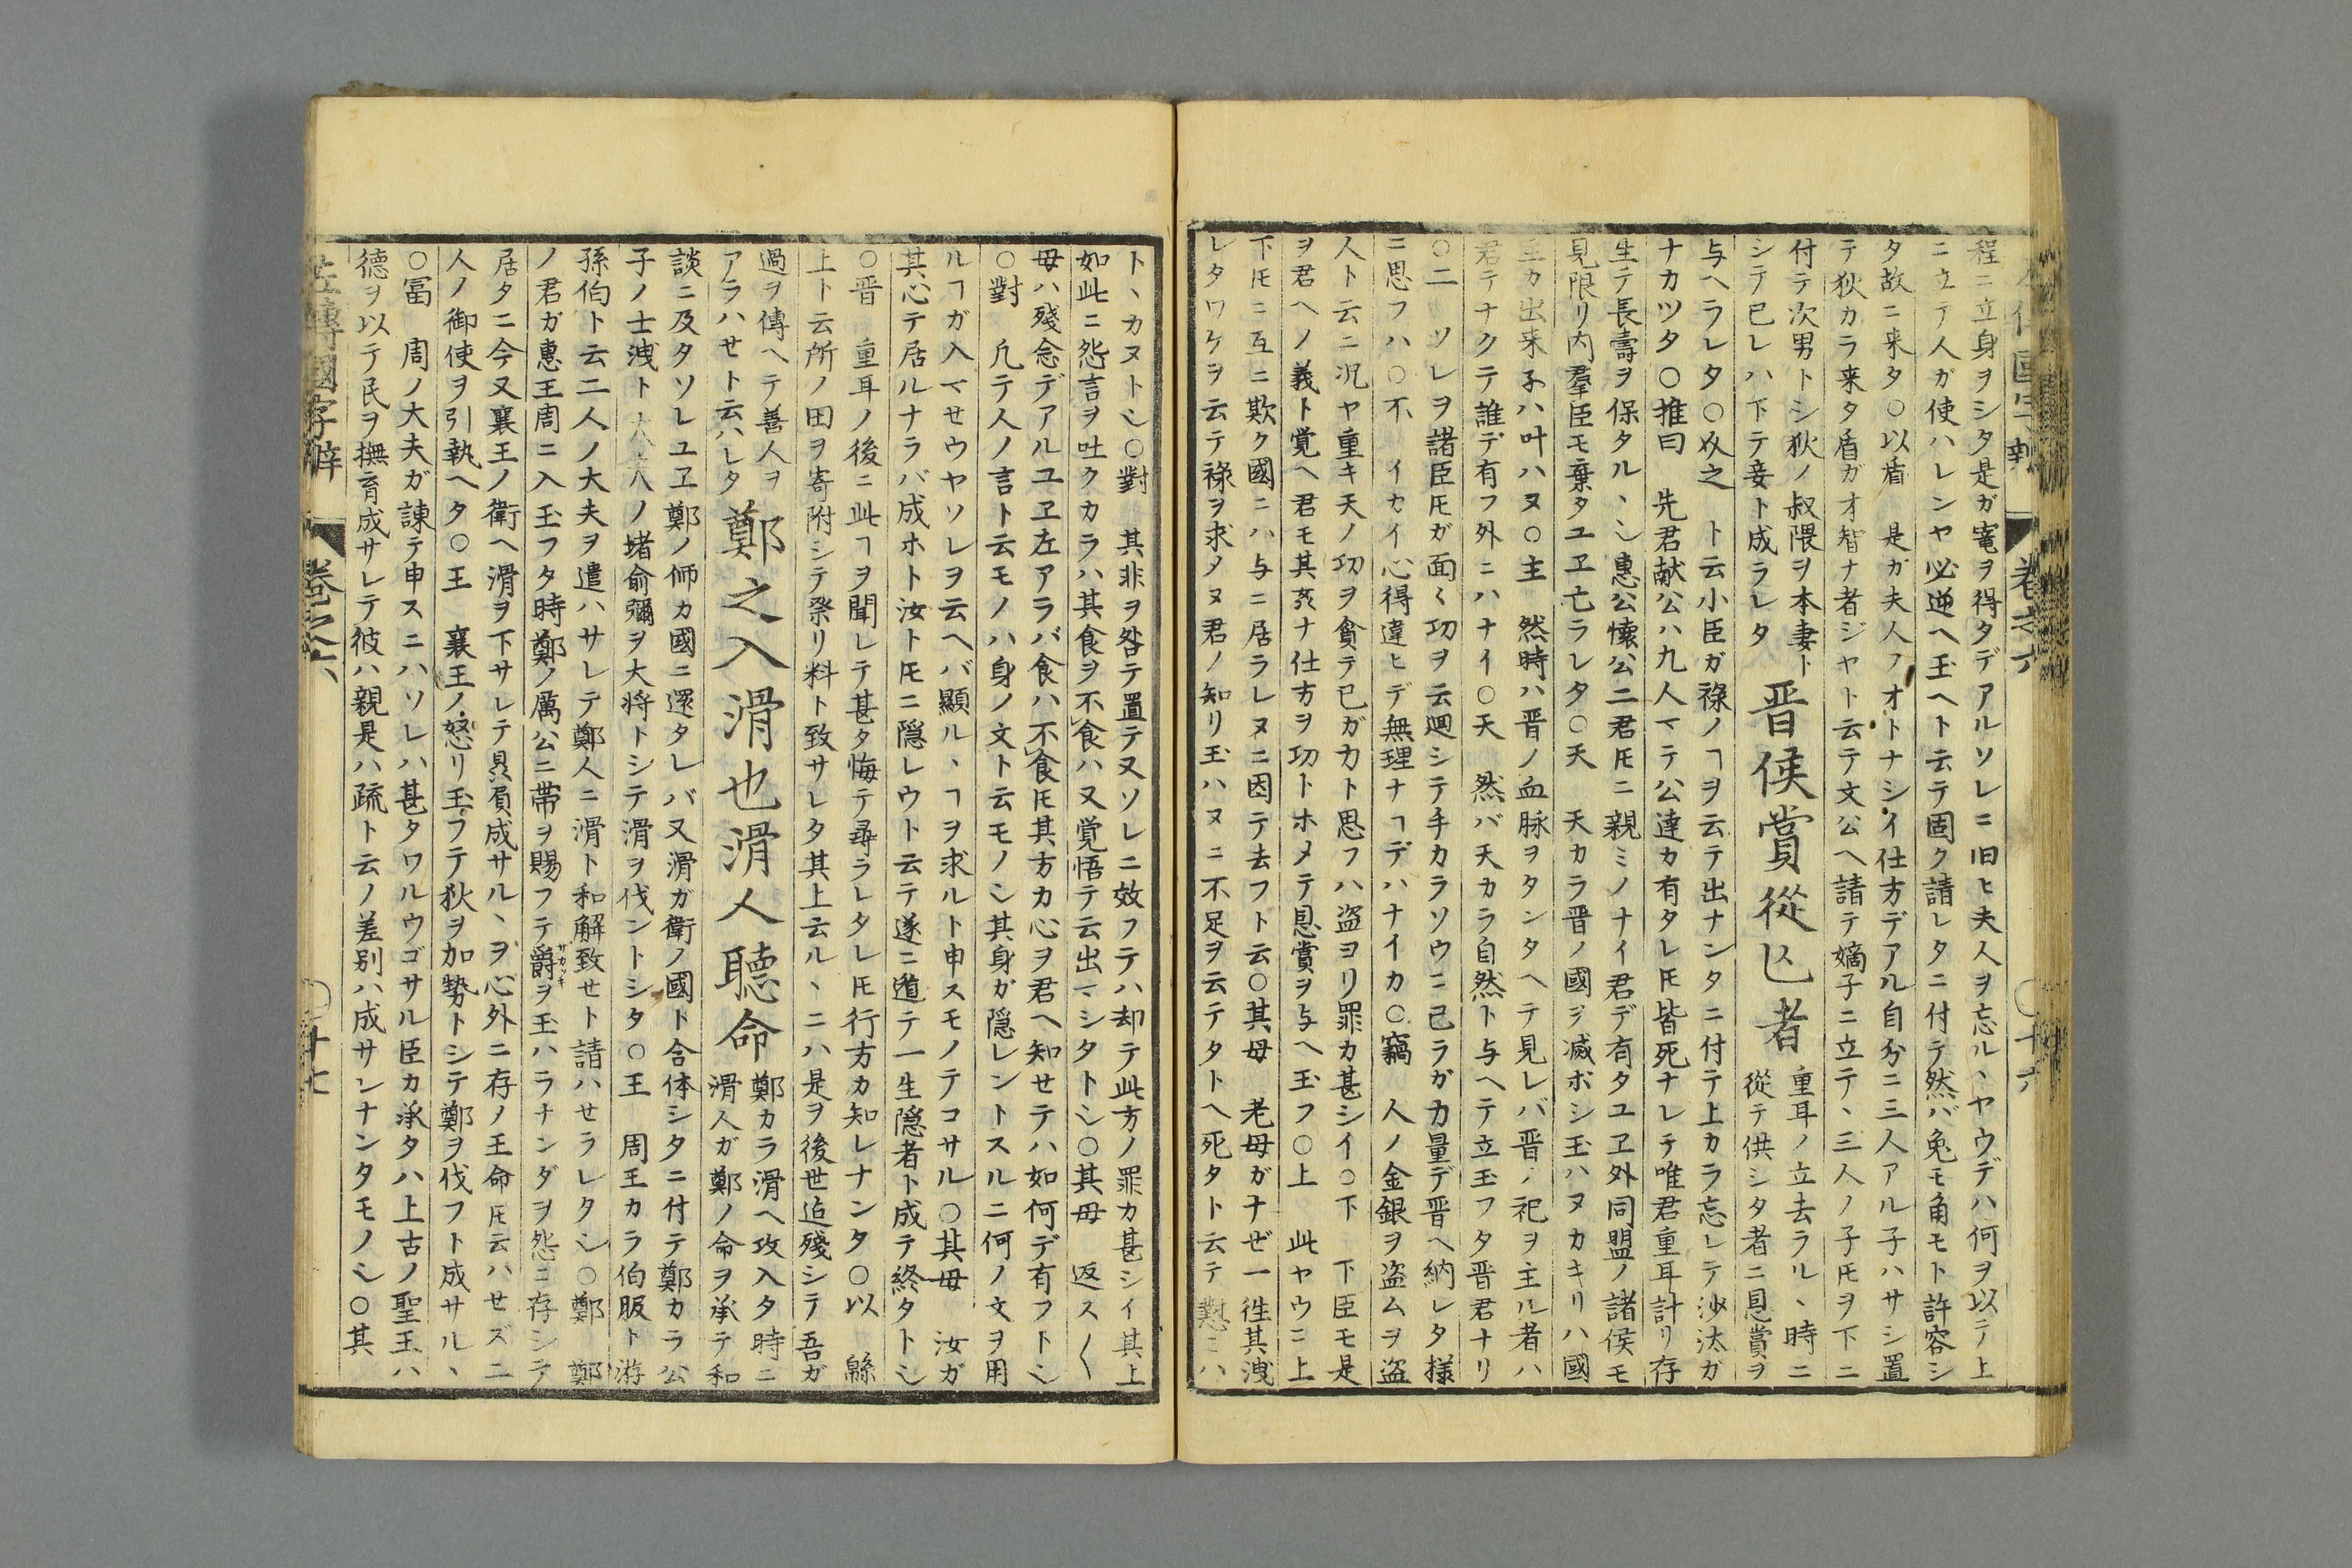 程ニ立身ヲシタ是ガ寵ヲ得タデアルソレニ旧ヒ夫人ヲ忘ルヽヤウデハ何ヲ以テ上
ニ立テ人ガ使ハレンヤ必逆ヘ玉ヘト云テ固ク請レタニ付テ然バ兔モ角モト許容シ
タ故ニ来タ○以盾　是ガ夫人ノオトナシイ仕方デアル自分ニ三人アル子ハサシ置
テ狄カラ来タ盾ガオ智ナ者ジヤト云テ文公ヘ請テ嫡子ニ立テヽ三人ノ子𪜈ヲ下ニ
付テ次男トシ狄ノ叔隗ヲ本妻ト
シテ已レハ下テ妾ト成ラレタ
晋侯賞從亡者
重耳ノ立去ラルヽ時ニ
從テ供シタ者ニ恩賞ヲ
与ヘラレタ○及之　ト云小臣ガ禄ノヿヲ云テ出ナンタニ付テ上カラ忘レテ沙汰ガ
ナカツタ○推曰　先君献公ハ九人マテ公達カ有タレ𪜈皆死ナレテ唯君重耳計リ存
生テ長壽ヲ保タルヽ乄惠公懐公二君𪜈ニ親ミノナイ君デ有タユヱ外同盟ノ諸侯モ
見限リ内羣臣モ棄タユヱ亡ラレタ○天　天カラ晋ノ國ヲ滅ボシ玉ハヌカキリハ國
主カ出来子ハ叶ハヌ○主　然時ハ晋ノ血脉ヲタンタヘテ見レバ晋ノ祀ヲ主ル者ハ
君テナクテ誰デ有フ外ニハナイ○天　然バ天カラ自然ト与ヘテ立玉フタ晋君ナリ
○二　ソレヲ諸臣𪜈ガ面〱功ヲ云廻シテ手カラソウニ己ラガ力量デ晋ヘ納レタ様
ニ思フハ○不　イカイ心得違ヒデ無理ナヿデハナイカ○竊　人ノ金銀ヲ盗ムヲ盗
人ト云ニ况ヤ重キ天ノ功ヲ貪テ已ガ力ト思フハ盗ヨリ罪カ甚シイ○下　下臣モ是
ヲ君ヘノ義ト覚ヘ君モ其姦ナ仕方ヲ功トホメテ恩賞ヲ与ヘ玉フ○上　此ヤウニ上
下𪜈ニ互ニ欺ク國ニハ与ニ居ラレヌニ因テ去フト云○其母　老母ガナゼ一往其洩
レタワケヲ云テ禄ヲ求メヌ君ノ知リ玉ハヌニ不足ヲ云テタトヘ死タト云テ懟ニハ
トヽカヌト乄○對　其非ヲ咎テ置テ又ソレニ效フテハ却テ此方ノ罪カ甚シイ其上
如此ニ怨言ヲ吐クカラハ其食ヲ不食ハ又覚悟テ云出マシタト乄○其母　返ス〱
母ハ殘念デアルユヱ左アラバ食ハ不食𪜈其方カ心ヲ君ヘ知せテハ如何デ有フト乄
○對　凡テ人ノ言ト云モノハ身ノ文ト云モノ乄其身ガ隠レントスルニ何ノ文ヲ用
ルヿガ入マせウヤソレヲ云ヘバ顯ルヽヿヲ求ルト申スモノテコサル○其母　汝ガ
其心テ居ルナラバ成ホト汝ト𪜈ニ隠レウト云テ遂ニ遁テ一生隠者ト成テ終タト乄
○晋　重耳ノ後ニ此ヿヲ聞レテ甚タ悔テ尋ラレタレ𪜈行方カ知レナンタ○以　緜
上ト云所ノ田ヲ寄附シテ祭リ料ト致サレタ其上云ルヽニハ是ヲ後世迄殘シテ吾ガ
過ヲ傳ヘテ善人ヲ
アラハせト云ハレタ
鄭之入滑也滑人聽命
鄭カラ滑ヘ攻入タ時ニ
滑人ガ鄭ノ命ヲ承テ和
談ニ及タソレユヱ鄭ノ師カ國ニ還タレバ又滑ガ衛ノ國ト合体シタニ付テ鄭カラ公
子ノ士洩ト大夫ノ堵俞彌ヲ大将トシテ滑ヲ伐ントシタ○王　周王カラ伯服ト游
孫伯ト云二人ノ大夫ヲ遣ハサレテ鄭人ニ滑ト和解致せト請ハせラレタ乄○鄭　鄭
ノ君ガ惠王周ニ入玉フタ時鄭ノ厲公ニ帯ヲ賜フテ爵ヲ玉ハラナンダヲ怨ニ存シテ
居タニ今又襄王ノ衛ヘ滑ヲ下サレテ贔屓成サルヽヲ心外ニ存ノ王命𪜈云ハせズ二
人ノ御使ヲ引執ヘタ○王　襄王ノ怒リ玉フテ狄ヲ加勢トシテ鄭ヲ伐フト成サルヽ
○冨　周ノ大夫ガ諌テ申スニハソレハ甚タワルウゴサル臣カ承タハ上古ノ聖王ハ
德ヲ以テ民ヲ撫育成サレテ彼ハ親是ハ疏ト云ノ差别ハ成サレナンタモノ乄○其
左傳國字辯　卷之六　○十七